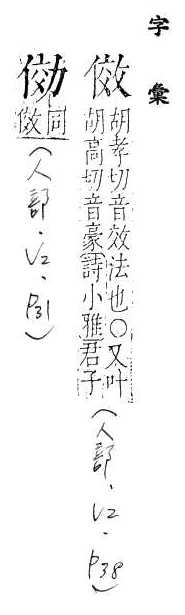 字彙
傚
胡孝切音效法也○又叶
胡高切音豪詩小雅君子
（人部、V2、P38）
俲
同
傚
（人部、V2、P31）